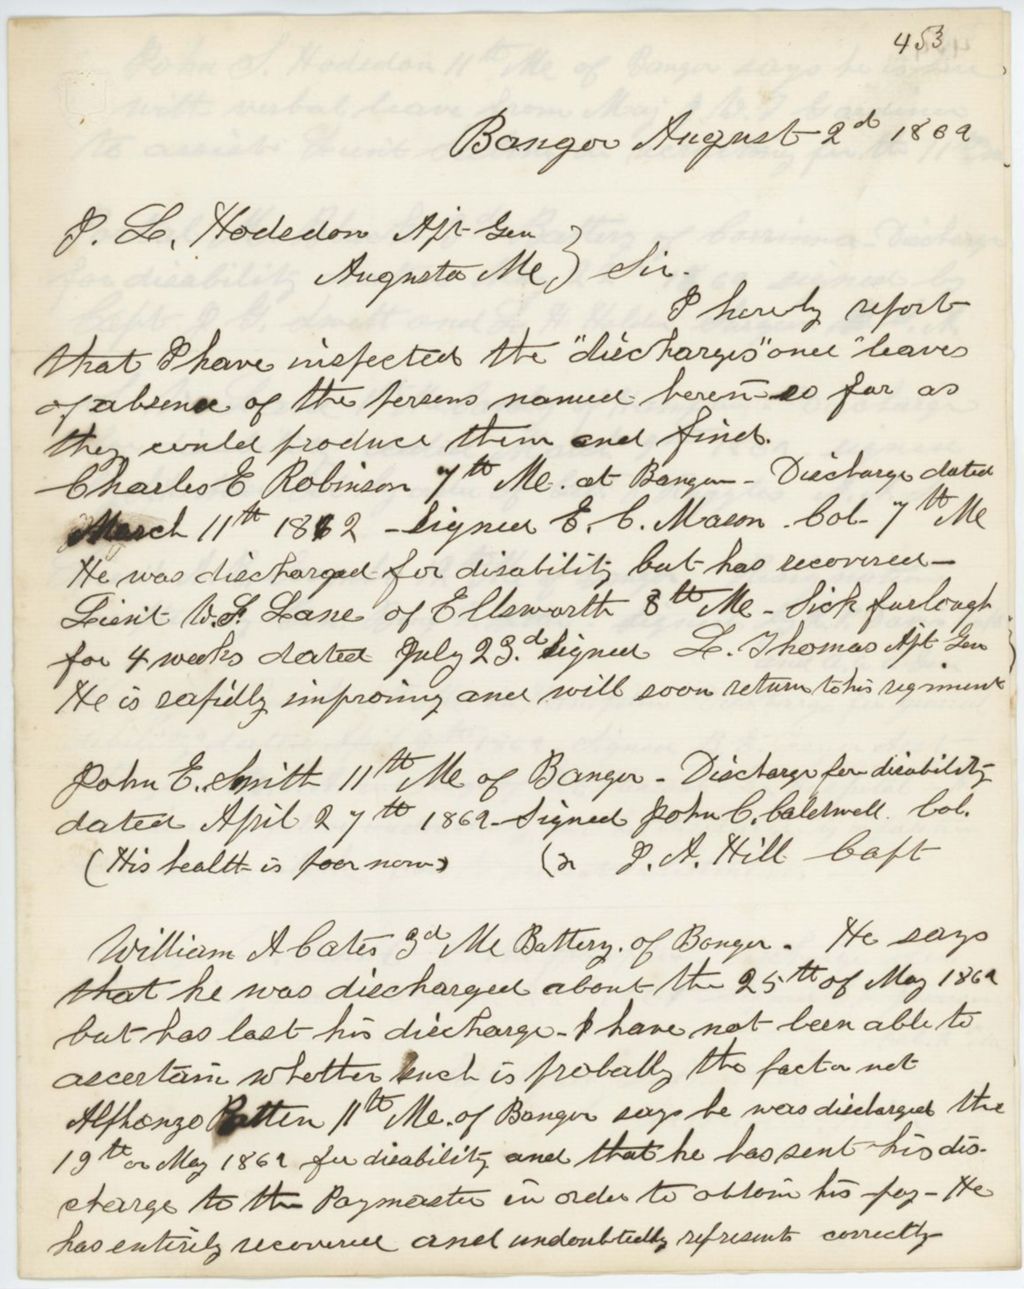 453
Bangor August 2d 1862
J. L. Hodsdon Ajt Gen
Augusta Me } Sir.
I hereby report
that I have inspected the "discharges" and "leaves
of absence of the persons named herein so far as
they could produce them and find.
Charles E Robinson 7th Me. at Bangor - Discharge dated
March 11th 1862 - Signed E. C. Mason. Col. 7th Me
He was discharged for disability but has recovered -
Lieut W. F. Lane of Ellsworth 8th Me - Sick furlough
for 4 weeks dated July 23.d signed L. Thomas Ajt Gen
He is rapidly improving and will soon return to his regiment
John E. Smith 11th Me of Bangor - Discharge for disability
dated April 27th 1862 - Signed John C. Caldwell. Col.
(His health is poor now) J. A. Hill Capt
William A Cates 3d Me Battery. of Bangor. He says
that he was discharged about the 25th of May 1862
but has lost his discharge - I have not been able to
ascertain whether such is probally the fact or not
Alphonzo Patten 11th Me. of Bangor says he was discharged the
19th or May 1862 for disability and that he has sent his dis-
charge to the Paymaster in order to obtain his pay - He
has entirely recovered and undoubtedly represents correctly